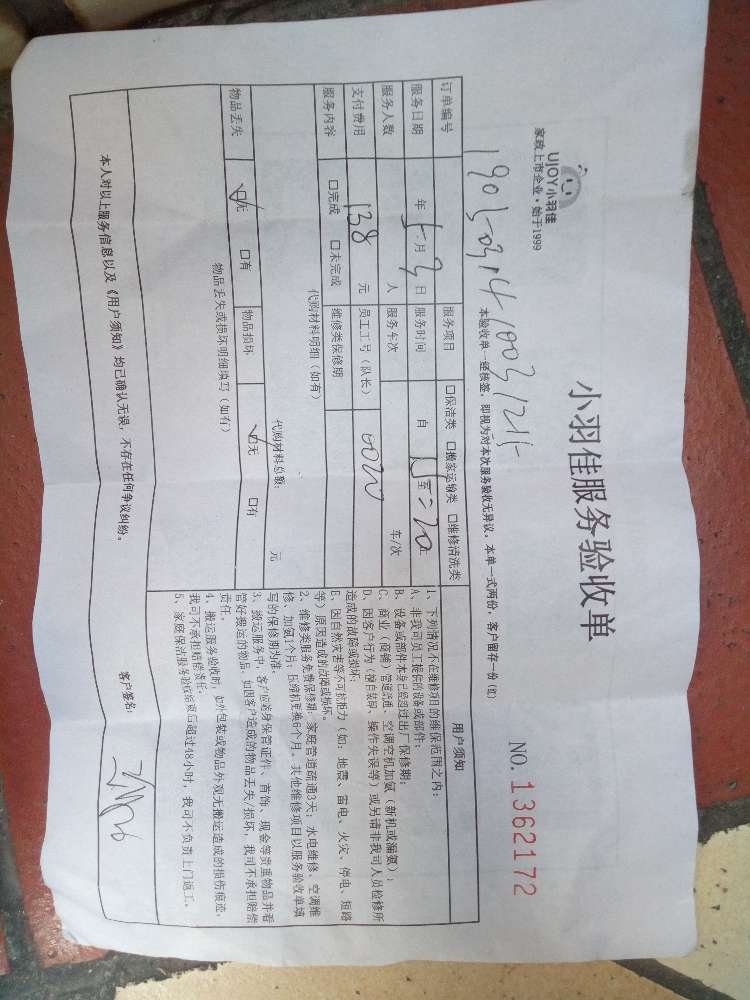 UJOY小羽佳
家政上市企业·始于1999
小羽佳服务验收单
NO. 1362172
本验收单一经核签,即视为对本次服务验收无异议。本单一式两份,客户留存一份(红)
订单编号
服务项目 □保洁类 □搬家运输类 □维修清洗类
服务日期 年 5 月 3 日 服务时间 自 至
服务人数 人 服务车次 车/次
支付费用 138 元 员工工号(队长)
服务内容 □完成 □未完成 维修类保修期
代购材料明细(如有)
代购材料总额: 元
物品丢失 ☑无 □有 物品损坏 ☑无 □有
物品丢失或损坏明细填写(如有)
用户须知
1、下列情况不在维修项目的维保范围之内:
A、非我司员工提供的设备或部件;
B、设备或部件本身已经超过出厂保修期;
C、商业(店铺)管道疏通、空调空机加氨(新机或漏氨);
D、因客户行为(擅自装卸、操作失误等)或另请非我司人员检修所
造成的故障或损坏;
E、因自然灾害等不可抗拒力(如:地震、雷电、火灾、停电、短路
等)原因造成的故障或损坏。
2、维修类服务免费保修期:家庭管道疏通3天;水电维修、空调维
修、加氨1个月;压缩机更换6个月。其他维修项目以服务验收单填
写的保修期为准。
3、搬运服务中,客户应随身保管证件、首饰、现金等贵重物品并看
管好搬运的物品,如因客户造成的物品丢失/损坏,我司不承担赔偿
责任。
4、搬运服务验收时,如外包装或物品外观无搬运造成的损伤痕迹,
我司可不承担赔偿责任。
5、家庭保洁服务验收结束后超过48小时,我司不负责上门返工。
本人对以上服务信息以及《用户须知》均已确认无误,不存在任何争议纠纷。
客户签名: